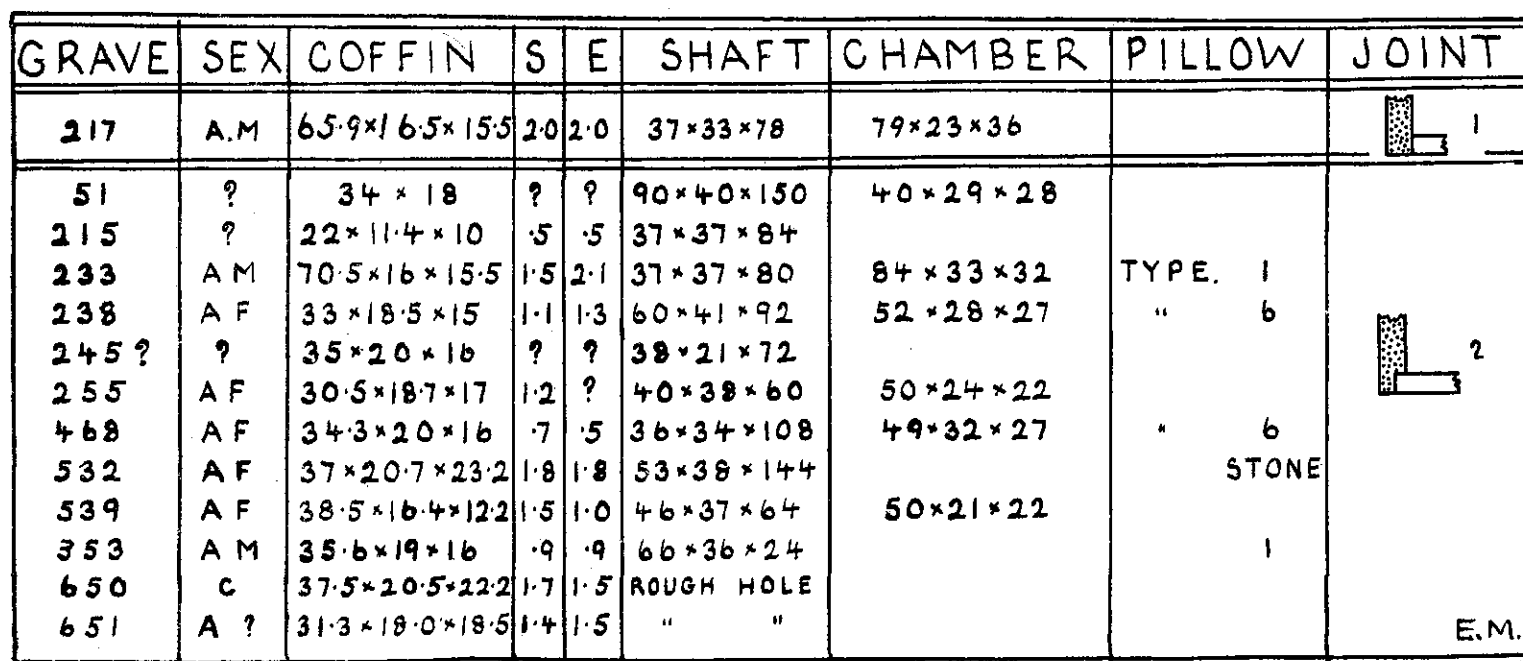 GRAVE SEX COFFIN S E SHAFT CHAMBER PILLOW JOINT
217 A.M 65·9×16·5×15·5 2·0 2·0 37×33×78 79×23×36 1
51 ? 34 × 18 ? ? 90×40×150 40×29×28
215 ? 22×11·4×10 ·5 ·5 37×37×84
233 A M 70·5×16×15·5 1·5 2·1 37×37×80 84×33×32 TYPE. 1
238 A F 33×18·5×15 1·1 1·3 60×41×92 52×28×27 " 6
245? ? 35×20×16 ? ? 38×21×72 2
255 A F 30·5×18·7×17 1·2 ? 40×38×60 50×24×22
468 A F 34·3×20×16 ·7 ·5 36×34×108 49×32×27 " 6
532 A F 37×20·7×23·2 1·8 1·8 53×38×144 STONE
539 A F 38·5×16·4×12·2 1·5 1·0 46×37×64 50×21×22
353 A M 35·6×19×16 ·9 ·9 66×36×24 1
650 C 37·5×20·5×22·2 1·7 1·5 ROUGH HOLE
651 A ? 31·3×18·0×18·5 1·4 1·5 " "
E.M.